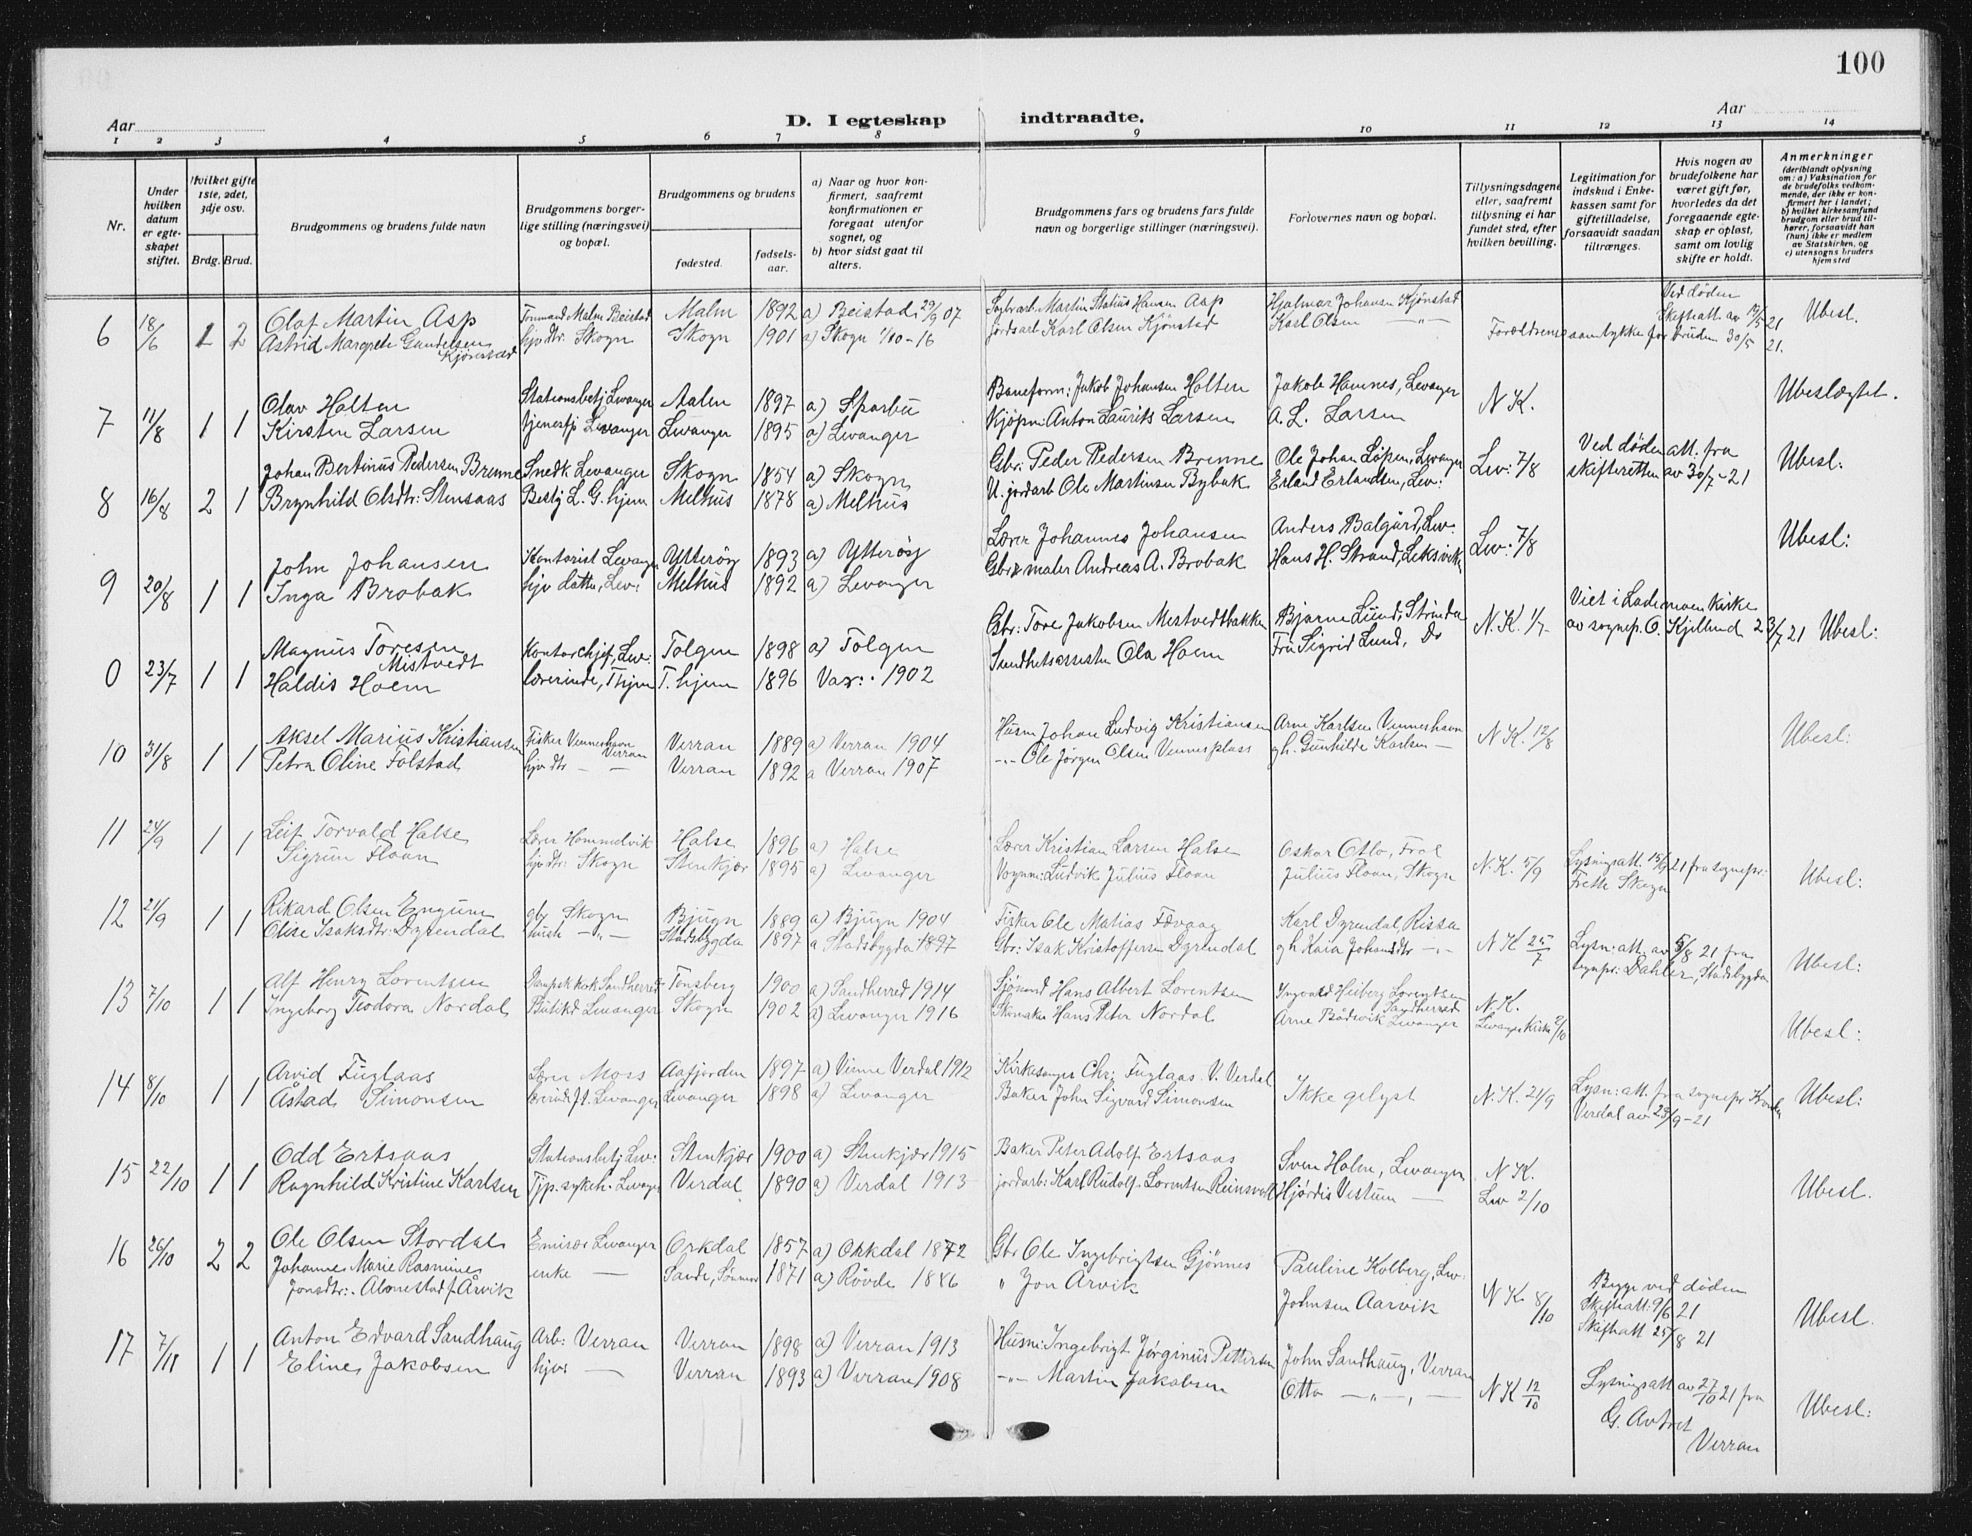 100
Aar
D. I egteskap indtraadte.
Aar
1 2 3 4 5 6 7 8 9 10 11 12 13 14
Nr.
Under hvilken datum er egteskapet stiftet.
Hvilket gifte 1ste, 2det, 3dje osv.
Brdg. Brud.
Brudgommens og brudens fulde navn
Brudgommens borgerlige stilling (næringsvei) og bopæl.
Brudgommens og brudens
fødested.
fødselsaar.
a) Naar og hvor konfirmert, saafremt konfirmationen er foregaat utenfor sognet, og
b) hvor sidst gaat til alters.
Brudgommens fars og brudens fars fulde navn og borgerlige stillinger (næringsvei).
Forlovernes navn og bopæl.
Tillysningsdagene eller, saafremt tillysning ei har fundet sted, efter hvilken bevilling.
Legitimation for indskud i Enkekassen samt for giftetilladelse, forsaavidt saadan tiltrænges.
Hvis nogen av brudefolkene har været gift før, hvorledes da det foregaaende egteskap er opløst, samt om lovlig skifte er holdt.
Anmerkninger (deriblandt oplysning om: a) Vaksination for de brudefolks vedkommende, der ikke er konfirmert her i landet; b) hvilket kirkesamfund brudgom eller brud tilhører, forsaavidt han (hun) ikke er medlem av Statskirken, og c) utensogns bruders hjemsted
6 18/6 1 2 Olaf Martin Asp Tømmand Malm Beistad Malm 1892 a) Beistad 29/9 07 Hjalmar Johansen Kjönstad Ved døden Skifteatt. av 19/5 21 Ubesl.
Astrid Margrete Gundelsen Kjönstad hjv dtr. Skogn Skogn 1901 a) Skogn 1/10-16 jordarb Karl Olsen Kjönstad Karl Olsen — " — Forældrenes samtykke for bruden 30/5 21.
7 11/8 1 1 Olav Holten Stationsbetj Levanger Malm 1897 a) Sparbu Baneform: Jakob Johansen Holten Jakob Hamnes, Levanger N K. Ubeslægtet.
Kirsten Larsen Levanger Levanger 1895 a) Levanger Kjøpm: Anton Laurits Larsen A. L. Larsen
8 16/8 2 1 Johan Bertinus Pedersen Brenne Snedk Levanger Skogn 1854 a) Skogn Gbr: Peder Pedersen Brenne Ole Johan Löpen, Levanger Lev: 7/8 Ved døden att. fra skifteretten av 30/7-21 Ubesl:
Brynhild Olsdtr: Stensaas Bestj L. G. hjem Melhus 1878 a) Melhus U. jordarb Ole Martinsen Bybak Erland Erlandsen, Lev:
9 20/8 1 1 John Johansen Kontorist Levanger Ytterøy 1893 a) Ytterøy Lærer Johannes Johansen Anders Balgård, Lev: Lev: 7/8 Ubesl:
Inga Brobak hjv datter, Lev: Melhus 1892 a) Levanger Gbr & maler Andreas A. Brobak Hans H. Strand, Leksvik
0 23/7 1 1 Magnus Toresen Mistvedt Kontorchef, Lev: Tolgen 1898 a) Tolgen Gbr: Tore Jakobsen Mestvedtbakken Bjarne Lund, Strinda N. K. 1/7- Viet i Lademoen Kirke av sognep. O. Kjellund 23/7 21 Ubesl:
Haldis Hoem lærerinde, T hjem T. hjem 1896 Vax: · 1902 Ola Hoem Fru Sigrid Lund, Do
10 31/8 1 1 Aksel Marius Kristiansen Fisker Venneshavn Verran Verran 1889 a) Verran 1904 Husm Johan Ludvig Kristiansen Arne Karlsen Venneshavn N K. 12/8 Ubesl:
Petra Oline Folstad hjv dtr — — Verran 1892 a Verran 1907 -"- Ole Jørgen Olsen Vennesplass gh. Gunhilde Karlsen —
11 24/9 1 1 Leif Torvald Halse Lærer Hommelvik Halse 1896 a) Halse Lærer Kristian Larsen Halse Oskar Otto, Frol N. K. 5/9 Lysningsatt. 15/9 21 fra sognepr: Frette Skogn Ubesl:
Sigrun Floan hjv dtr: Skogn Stenkjær 1895 a) Levanger Vognm: Ludvik Julius Floan Julius Floan, Skogn
12 21/9 1 1 Rikard Olsen Engum gbr Skogn Bjugn 1889 a) Bjugn 1904 Fisker Ole Matias Fævaag Karl Dyrendal, Rissa N K 25/7 Lysn: att. av 5/8 21 fra sognepr: Dahler, Stadsbygda Ubesl:
Olise Isaksdtr: Dyrendal hush — " — Stadsbygda 1897 a Stadsbygda 1897 Gbr: Isak Kristoffersen Dyrendal gh Kaia Johansdtr -"-
13 7/10 1 1 Alf Henry Lorentsen Dampsk kok Sandherred Tonsberg 1900 a) Sandherred 1914 Sjømand Hans Albert Lorentsen Ingvald Heiberg Lorentsen Sandherred N. K. Levanger Kirke 2/10 Ubesl:
Ingeborg Teodora Nordal Butikd Levanger Skogn 1902 a) Levanger 1916 Skomaker Hans Peter Nordal Arne Bådsvik Levanger
14 8/10 1 1 Arvid Fuglaas Lærer Moss Aafjorden 1897 a) Vinne Verdal 1912 Kirkesanger Chr: Fuglaas V. Verdal Ikke gelyst N. K. 21/9 Lysn: att. fra sognepr Verdal av 25/9-21 Ubesl:
Åstad Simonsen Levanger Levanger 1898 a) Levanger Baker John Sigvard Simonsen
15 22/10 1 1 Odd Ertsaas Stationsbetj Lev: Stenkjær 1900 a) Stenkjær 1915 Baker Peter Adolf Ertsaas Sven Holm, Levanger N K. Lev 2/10 Ubesl.
Ragnhild Kristine Karlsen Tjp. sykeh. Levanger Verdal 1890 a) Verdal 1913 jordarb: Karl Rudolf Lorentsen Reinsvoll Hjørdis Vestum —
16 26/10 2 2 Ole Olsen Stordal Emisær Levanger Orkdal 1857 a) Orkdal 1872 Gbr Ole Ingebrigtsen Gjönnes Pauline Kolberg, Lev: N K 8/10 Begge ved døden Skifteatt: 9/6 21 Skifteatt 25/8 21 Ubesl.
Johanne Marie Rasmine Jonsdtr: Abonestad f. Årvik enke — Sande, Sönmør 1871 a) Røvde 1886 " Jon Årvik Johnsen Aarvik
17 7/11 1 1 Anton Edvard Sandhaug Arb: Verran Verran 1898 a) Verran 1913 Husm: Ingebrigt Jørginus Pettersen John Sandhaug, Verran N K 12/10 Lysningsatt av 27/10 21 fra G. Avtret Verran Ubesl:
Eline Jakobsen hjv — Verran 1893 a) Verran 1908 -"- Martin Jakobsen Otto — " —